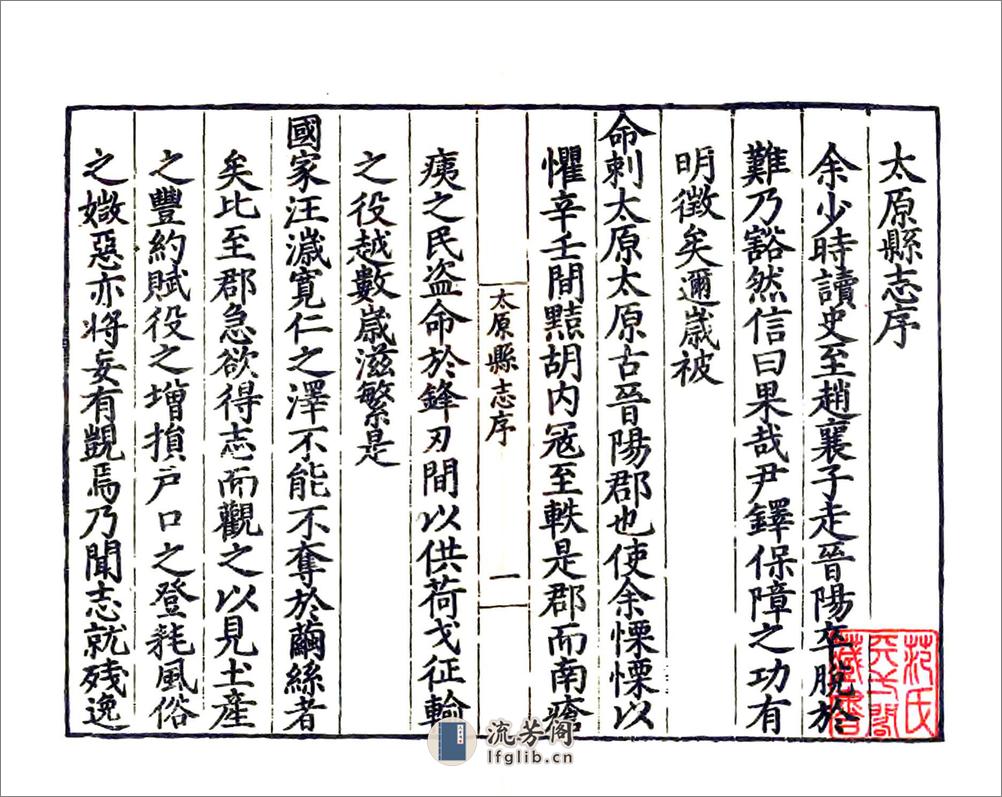 太原縣志序
余少時讀史至趙襄子走晉陽卒脫於
難乃豁然信曰果哉尹鐸保障之功有
明徵矣邇嵗被
命刺太原太原古晉陽郡也使余慄慄以
懼辛壬間黠胡内冦至軼是郡而南瘡
太原縣志序
一
痍之民盗命於鋒刃間以供荷戈征輸
之役越數嵗滋繁是
國家汪濊寛仁之澤不能不奪於繭絲者
矣比至郡急欲得志而觀之以見土產
之豐約賦役之增損户口之登耗風俗
之媺惡亦将妄有覬焉乃聞志就殘逸
范氏天一閣藏書
流芳阁
lfglib.cn